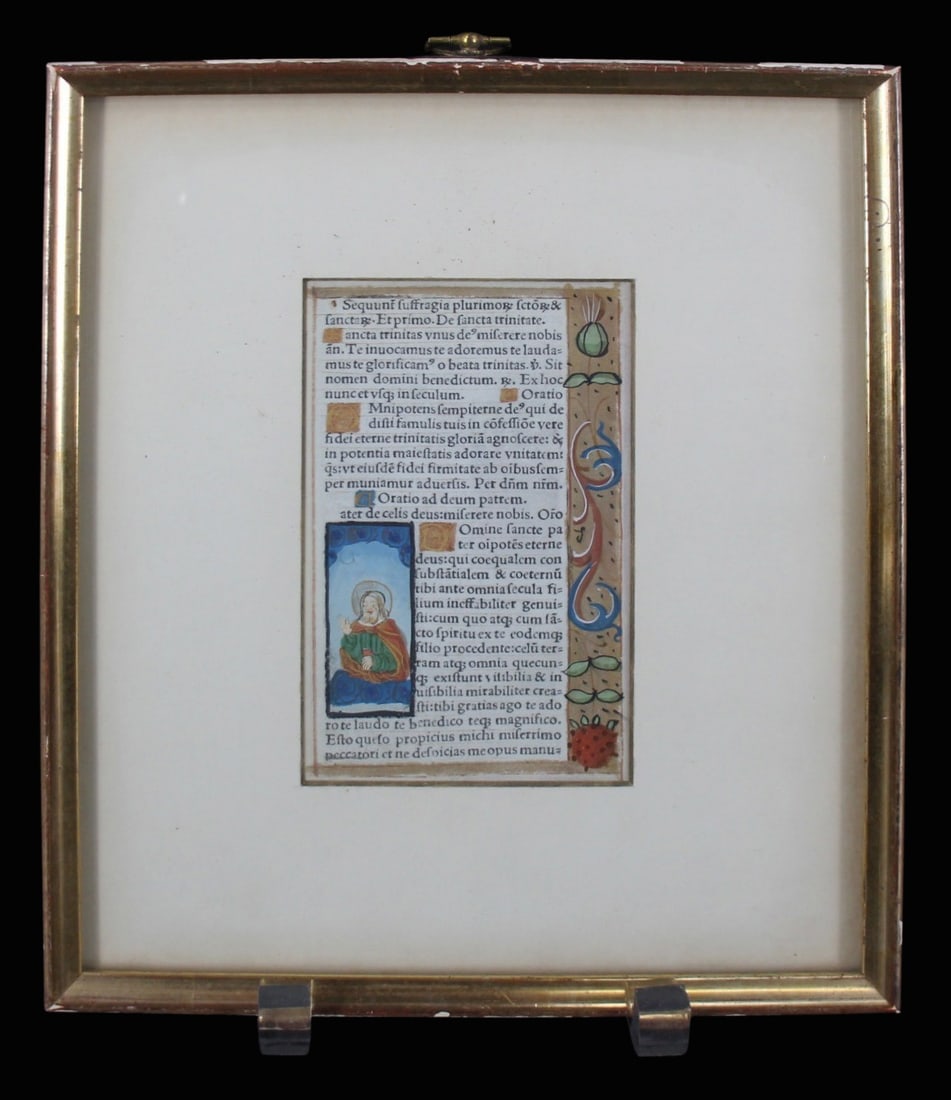 Sequunt̃ suffragia plurimoꝝ sctõꝝ &
sanctaꝝ. Et primo. De sancta trinitate.
ancta trinitas vnus deꝰ miserere nobis
añ. Te inuocamus te adoremus te lauda=
mus te glorificamꝰ o beata trinitas. ℣. Sit
nomen domini benedictum. ℟. Ex hoc
nunc et vsqꝫ in seculum. Oratio
Mnipotens sempiterne deꝰ qui de
disti famulis tuis in cõfessiõe vere
fidei eterne trinitatis gloriã agnoscere: &
in potentia maiestatis adorare vnitatem:
q̃s: vt eiusdẽ fidei firmitate ab oĩbus sem=
per muniamur aduersis. Per dñm nr̃m.
Oratio ad deum patrem.
ater de celis deus: miserere nobis. Or̃o
Omine sancte pa
ter oĩpotẽs eterne
deus: qui coequalem con
substãtialem & coeternũ
tibi ante omnia secula fi=
lium ineffabiliter genui=
sti: cum quo atqꝫ cum sã=
cto spiritu ex te eodemqꝫ
filio procedente: celũ ter=
ram atqꝫ omnia quecun=
qꝫ existunt visibilia & in
uisibilia mirabiliter crea=
sti: tibi gratias ago te ado
ro te laudo te benedico teqꝫ magnifico.
Esto queso propicius michi miserrimo
peccatori et ne despicias me opus manu=